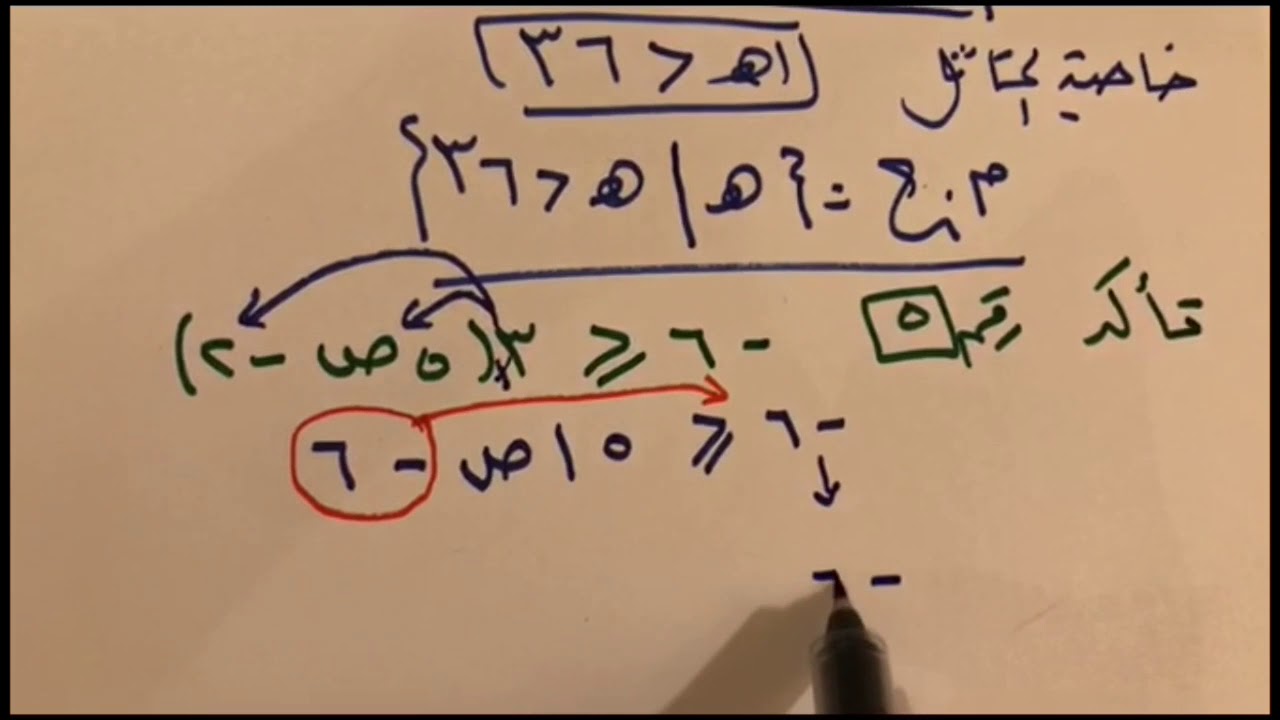 خاصية التماثل اهـ > ٣٦
م.ح = {هـ | هـ > ٣٦}
تأكد رقم ٥ - ٦ ≤ ٣(٥ص - ٢)
- ٦ ≤ ١٥ص - ٦
- ٦